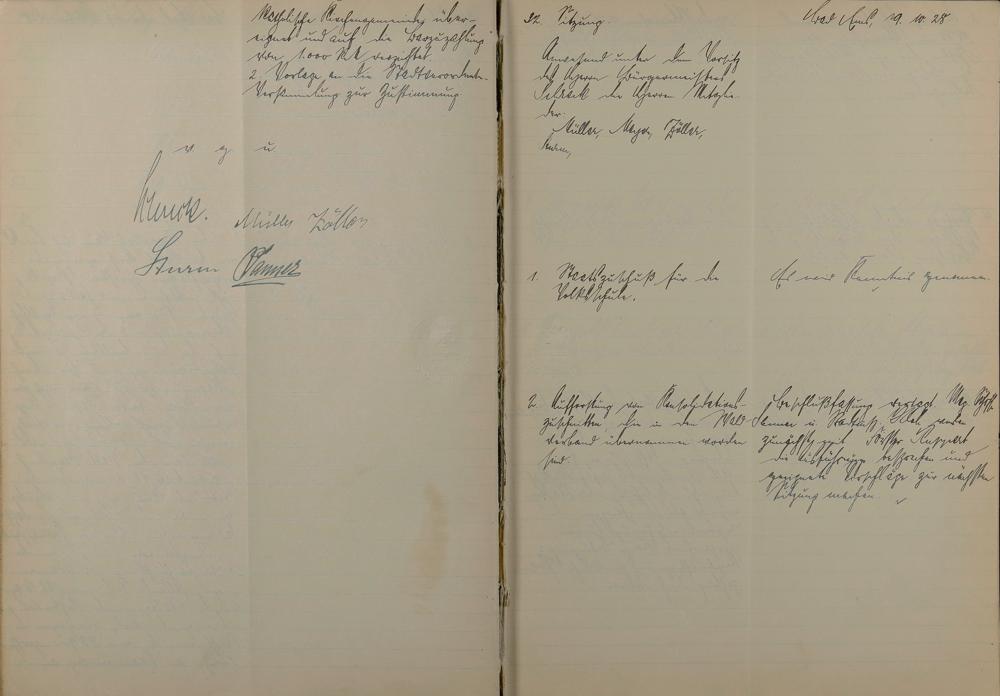 katholische Kirchengemeinde über-
eignet und auf die Barzuzahlung
von 1.000 RM verzichtet.
2. Vorlage an die Stadtverordneten-
Versammlung zur Zustimmung
v g u
Müller Zöller
Sturm Danner
32. Sitzung.
Bad Ems, 19. 10. 28
Anwesend unter dem Vorsitz
des Herrn Bürgermeisters
die Herren Mitglie-
der
Müller, Meyer, Zöller,
Sturm,
1. Staatszuschuß für die
Volksschule.
Es wird Kenntnis genommen.
2. Aufforstung von Konsolidations-
zuschnitten, die in den Wald-
verband übernommen worden
sind.
Beschlußfassung vertagt. Mag. Schöffe
Danner u. werden
zunächst mit Förster Ruppert
die Ausführung besprechen und
geeignete Vorschläge zur nächsten
Sitzung machen.